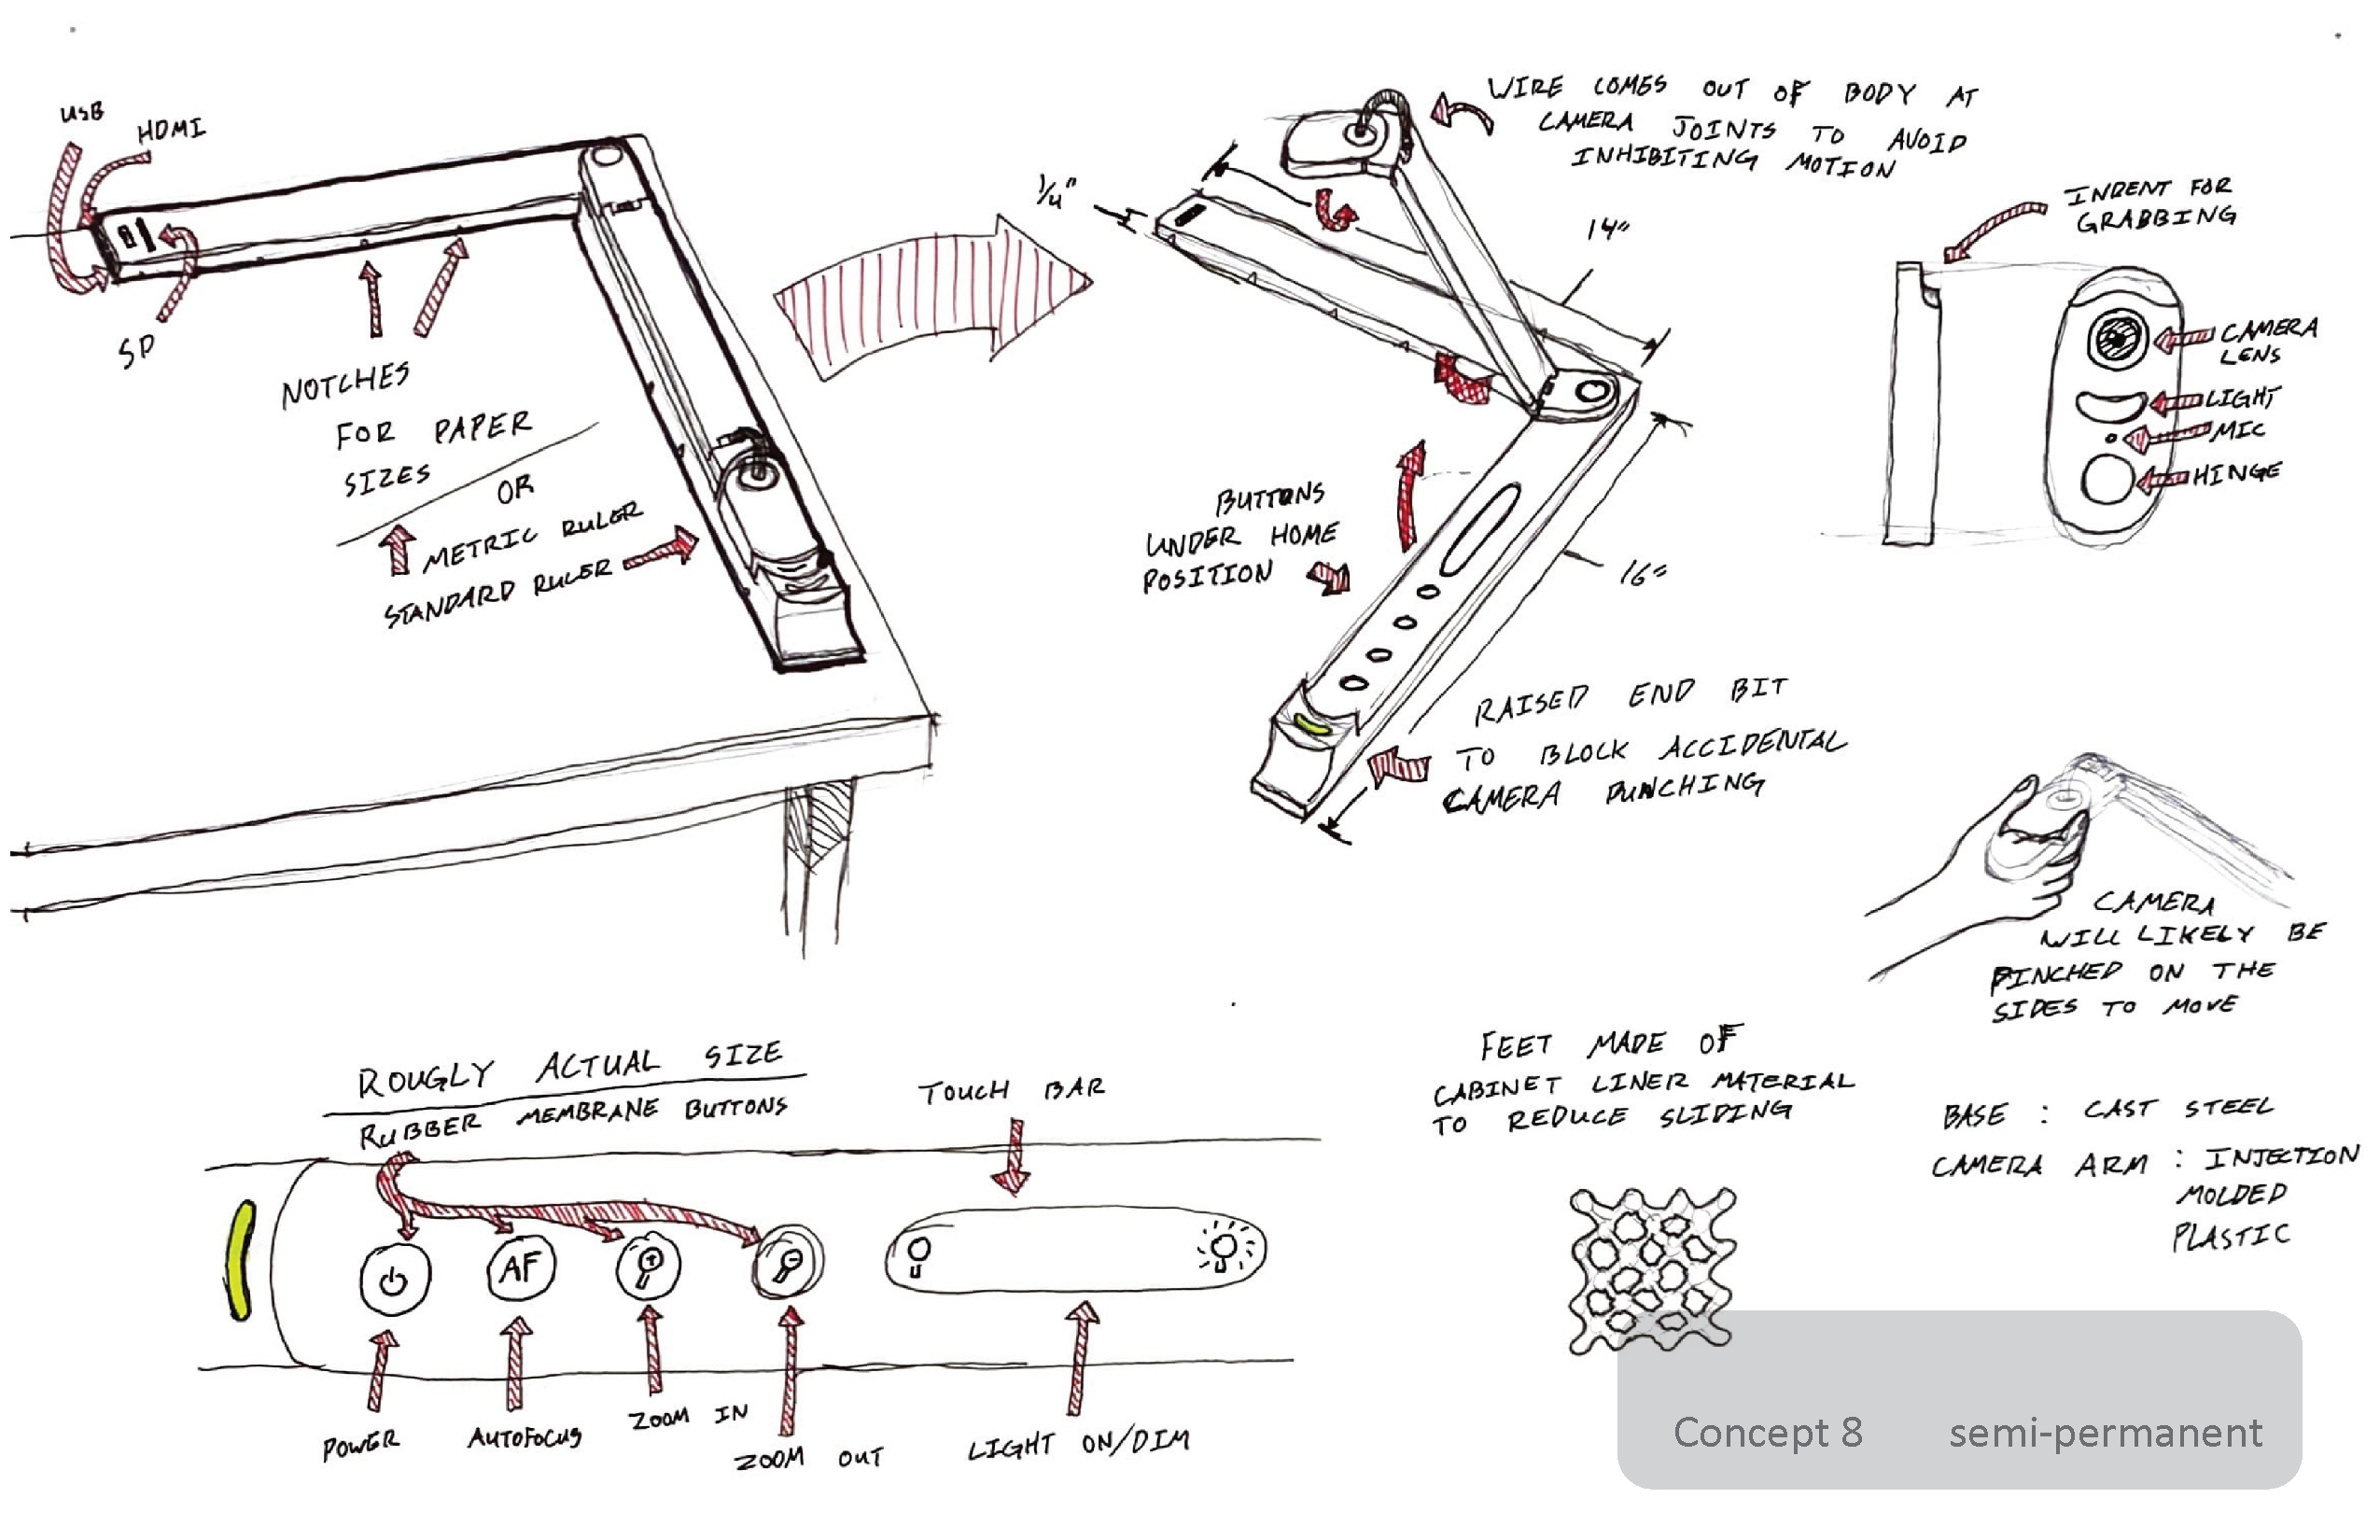 USB
HDMI
SD
NOTCHES
FOR PAPER
SIZES
OR
METRIC RULER
STANDARD RULER
WIRE COMES OUT OF BODY AT
CAMERA JOINTS TO AVOID
INHIBITING MOTION
1/4"
14"
16"
BUTTONS
UNDER HOME
POSITION
RAISED END BIT
TO BLOCK ACCIDENTAL
CAMERA PUNCHING
INDENT FOR
GRABBING
CAMERA
LENS
LIGHT
MIC
HINGE
CAMERA
WILL LIKELY BE
PINCHED ON THE
SIDES TO MOVE
ROUGLY ACTUAL SIZE
RUBBER MEMBRANE BUTTONS
TOUCH BAR
AF
POWER
AUTOFOCUS
ZOOM IN
ZOOM OUT
LIGHT ON/DIM
FEET MADE OF
CABINET LINER MATERIAL
TO REDUCE SLIDING
BASE : CAST STEEL
CAMERA ARM : INJECTION
MOLDED
PLASTIC
Concept 8 semi-permanent